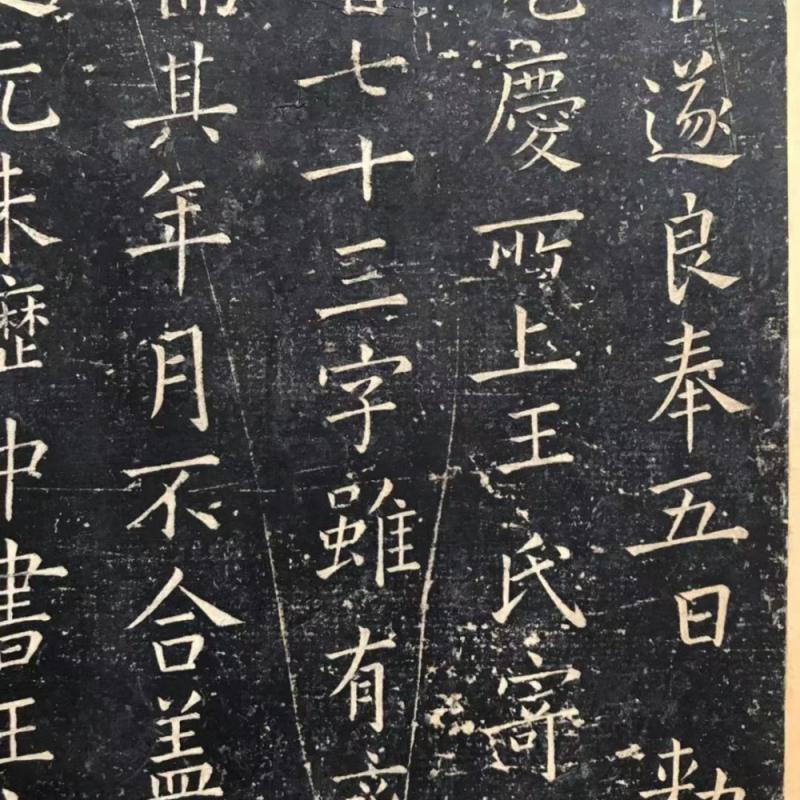 遂良奉五日
慶所上王氏寄
七十三字雖有
其年月不合盖
元歷中書王